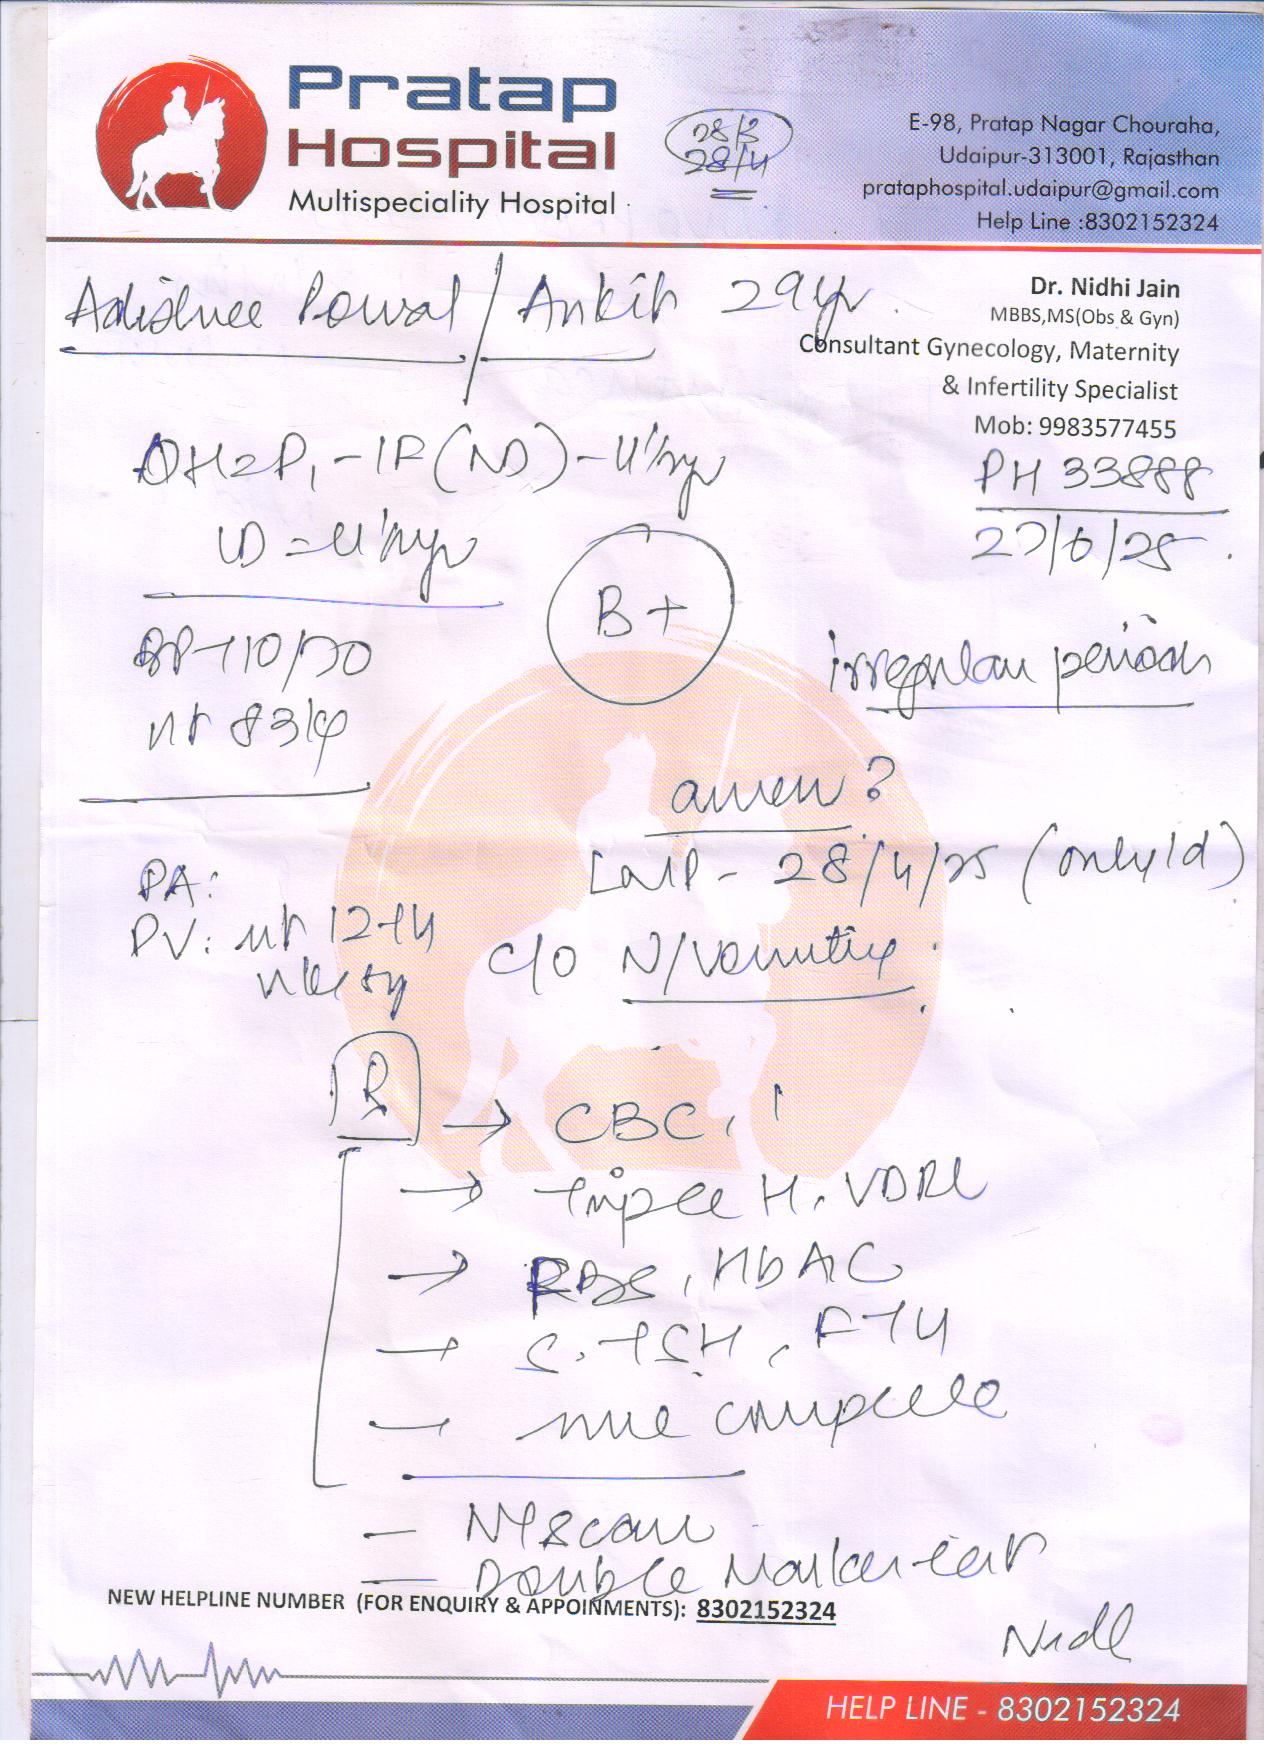 Pratap
Hospital
Multispeciality Hospital
28/3
28/4
E-98, Pratap Nagar Chouraha,
Udaipur-313001, Rajasthan
prataphospital.udaipur@gmail.com
Help Line :8302152324
/ Ankit 29yr
Dr. Nidhi Jain
MBBS,MS(Obs & Gyn)
Consultant Gynecology, Maternity
& Infertility Specialist
Mob: 9983577455
PH 33888
27/6/25
B+
BP-110/70
irregular periods
amen?
LMP - 28/4/25 (only 1d)
PA:
PV: ut 12-14
c/o N/vomiting
R
→ CBC,
→ Triple H, VDRL
→ RBS, HbA1C
→ S. TSH, FT4
- urine complete
- NT scan
- Double Marker test
NEW HELPLINE NUMBER (FOR ENQUIRY & APPOINMENTS): 8302152324
HELP LINE - 8302152324